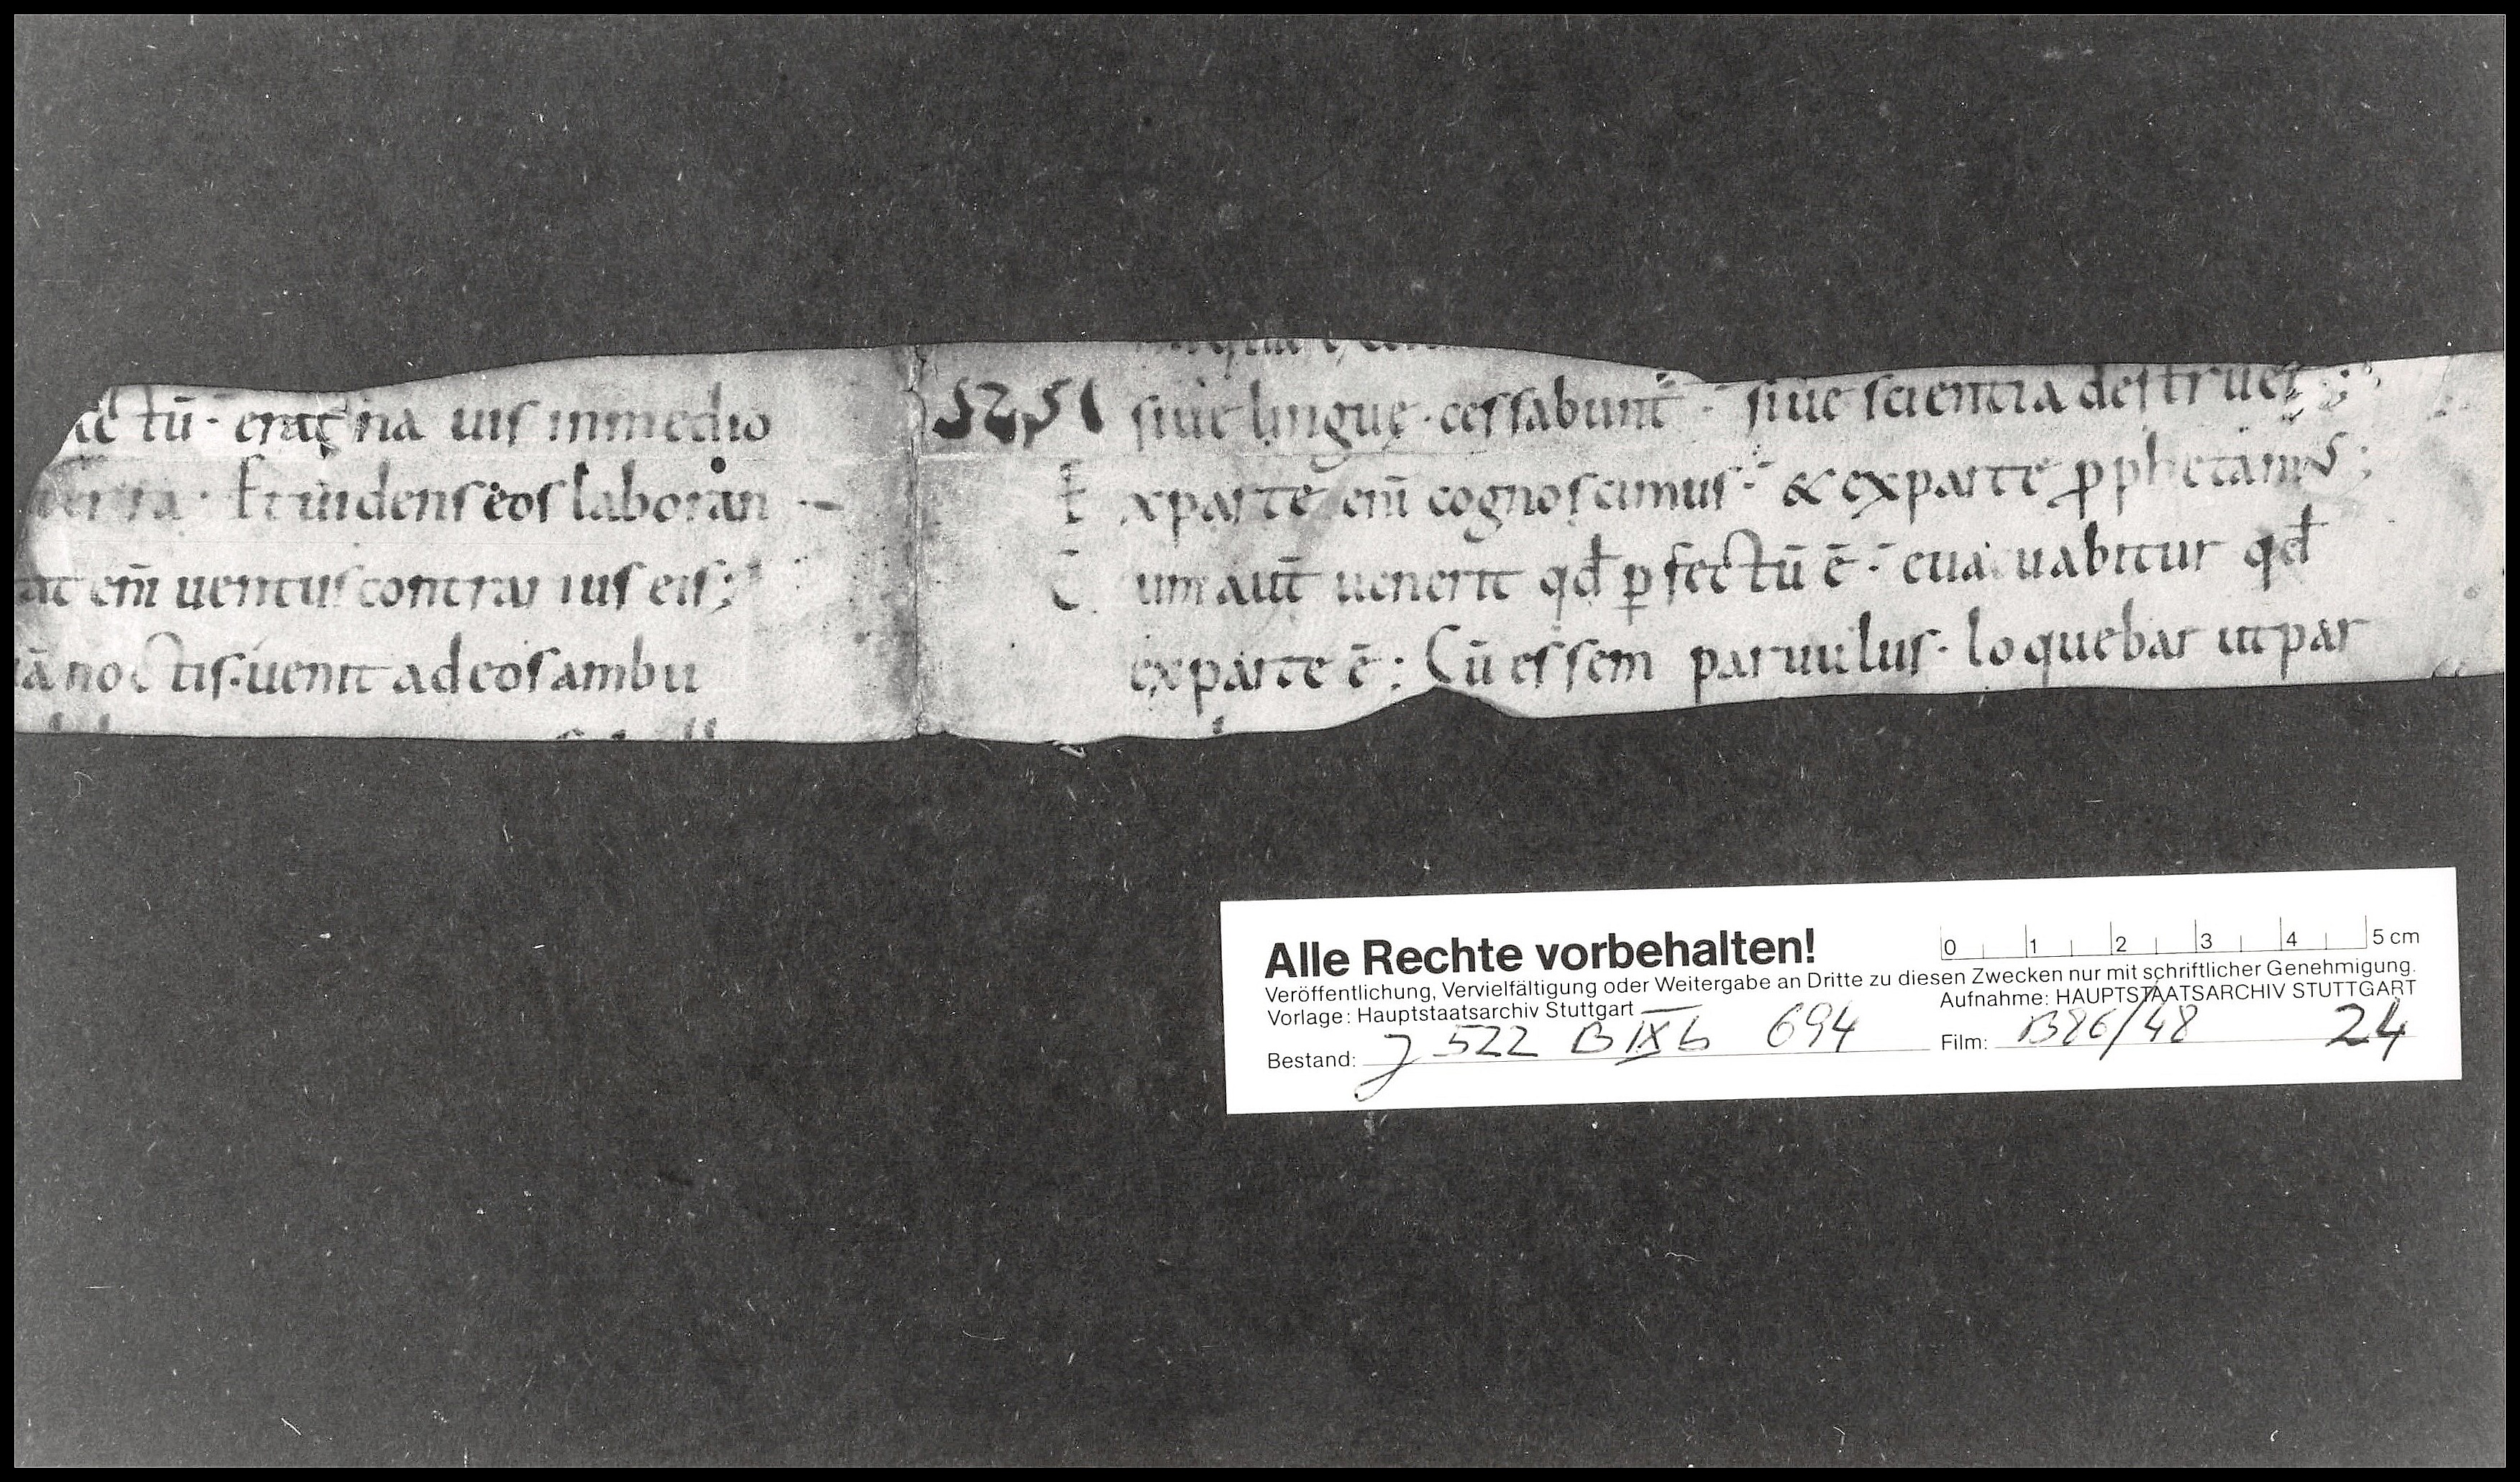 ctū · erat na uis inmedio
Et uidens eos laboran
at em̄ uentus contrarius eis;
ā noctis · uenit ad eos ambu
siue linguę · cessabunt · siue scientia destruet ;
E xparte em̄ cognoscimus · & exparte ꝓphetamus ;
C um aut̄ uenerit qd̄ ꝑfectū ē · euacuabitur qd̄
exparte ē ; Cū essem paruulus · loquebar ut par
Alle Rechte vorbehalten!
0 1 2 3 4 5 cm
Veröffentlichung, Vervielfältigung oder Weitergabe an Dritte zu diesen Zwecken nur mit schriftlicher Genehmigung.
Vorlage: Hauptstaatsarchiv Stuttgart Aufnahme: HAUPTSTAATSARCHIV STUTTGART
Bestand: J 522 B IX b 694 Film: B86/48 24